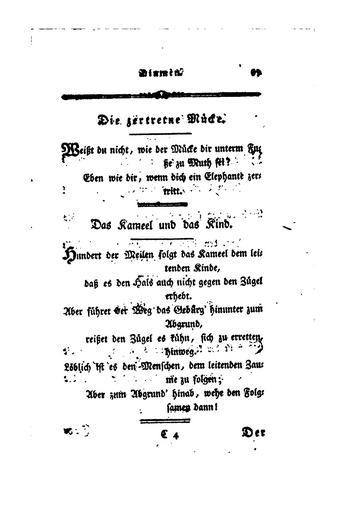 Blumen.
Die zertretne Mücke.
Weißt du nicht, wie der Mücke dir unterm Fu-
ße zu Muth ist?
Eben wie dir, wenn dich ein Elephante zer-
tritt.
Das Kameel und das Kind.
Hundert der Meilen folgt das Kameel dem lei-
tenden Kinde,
daß es den Hals auch nicht gegen den Zügel
erhebt.
Aber führet der Weg das Gebürg' hinunter zum
Abgrund,
reißet den Zügel es kühn, sich zu erretten,
hinweg.
Löblich ist es den Menschen, dem leitenden Zau-
me zu folgen;
Aber zum Abgrund' hinab, wehe den Folg-
samen dann!
C 4 Der